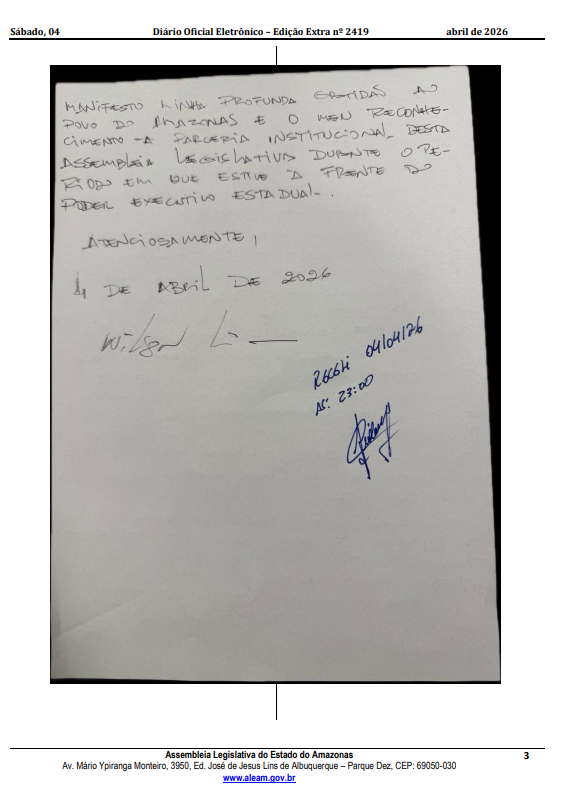 Sábado, 04 Diário Oficial Eletrônico – Edição Extra nº 2419 abril de 2026
MANIFESTO MINHA PROFUNDA GRATIDÃO AO
POVO DO AMAZONAS E O MEU RECONHE-
CIMENTO À PARCERIA INSTITUCIONAL DESTA
ASSEMBLEIA LEGISLATIVA DURANTE O PE-
RÍODO EM QUE ESTIVE À FRENTE DO
PODER EXECUTIVO ESTADUAL.
ATENCIOSAMENTE,
4 DE ABRIL DE 2026
Wilson Li
Recebi 04/04/26
ÀS: 23:00
Assembleia Legislativa do Estado do Amazonas
3
Av. Mário Ypiranga Monteiro, 3950, Ed. José de Jesus Lins de Albuquerque – Parque Dez, CEP: 69050-030
www.aleam.gov.br